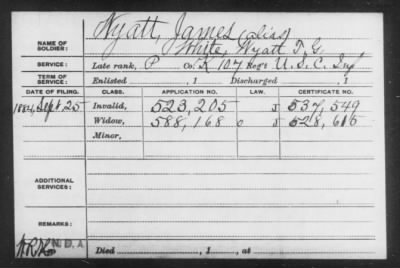 Wyatt, James (alias)
NAME OF SOLDIER: White, Wyatt T. G.
SERVICE: Late rank, P Co. K 107 Reg't U. S. C. Inf
TERM OF SERVICE: Enlisted , 1 Discharged , 1
DATE OF FILING. CLASS. APPLICATION NO. LAW. CERTIFICATE NO.
1884, Sept. 25 Invalid, 523,205 537,549
Widow, 588,168 528,615
Minor,
ADDITIONAL SERVICES:
REMARKS:
N. D. A. Died , 1 , at